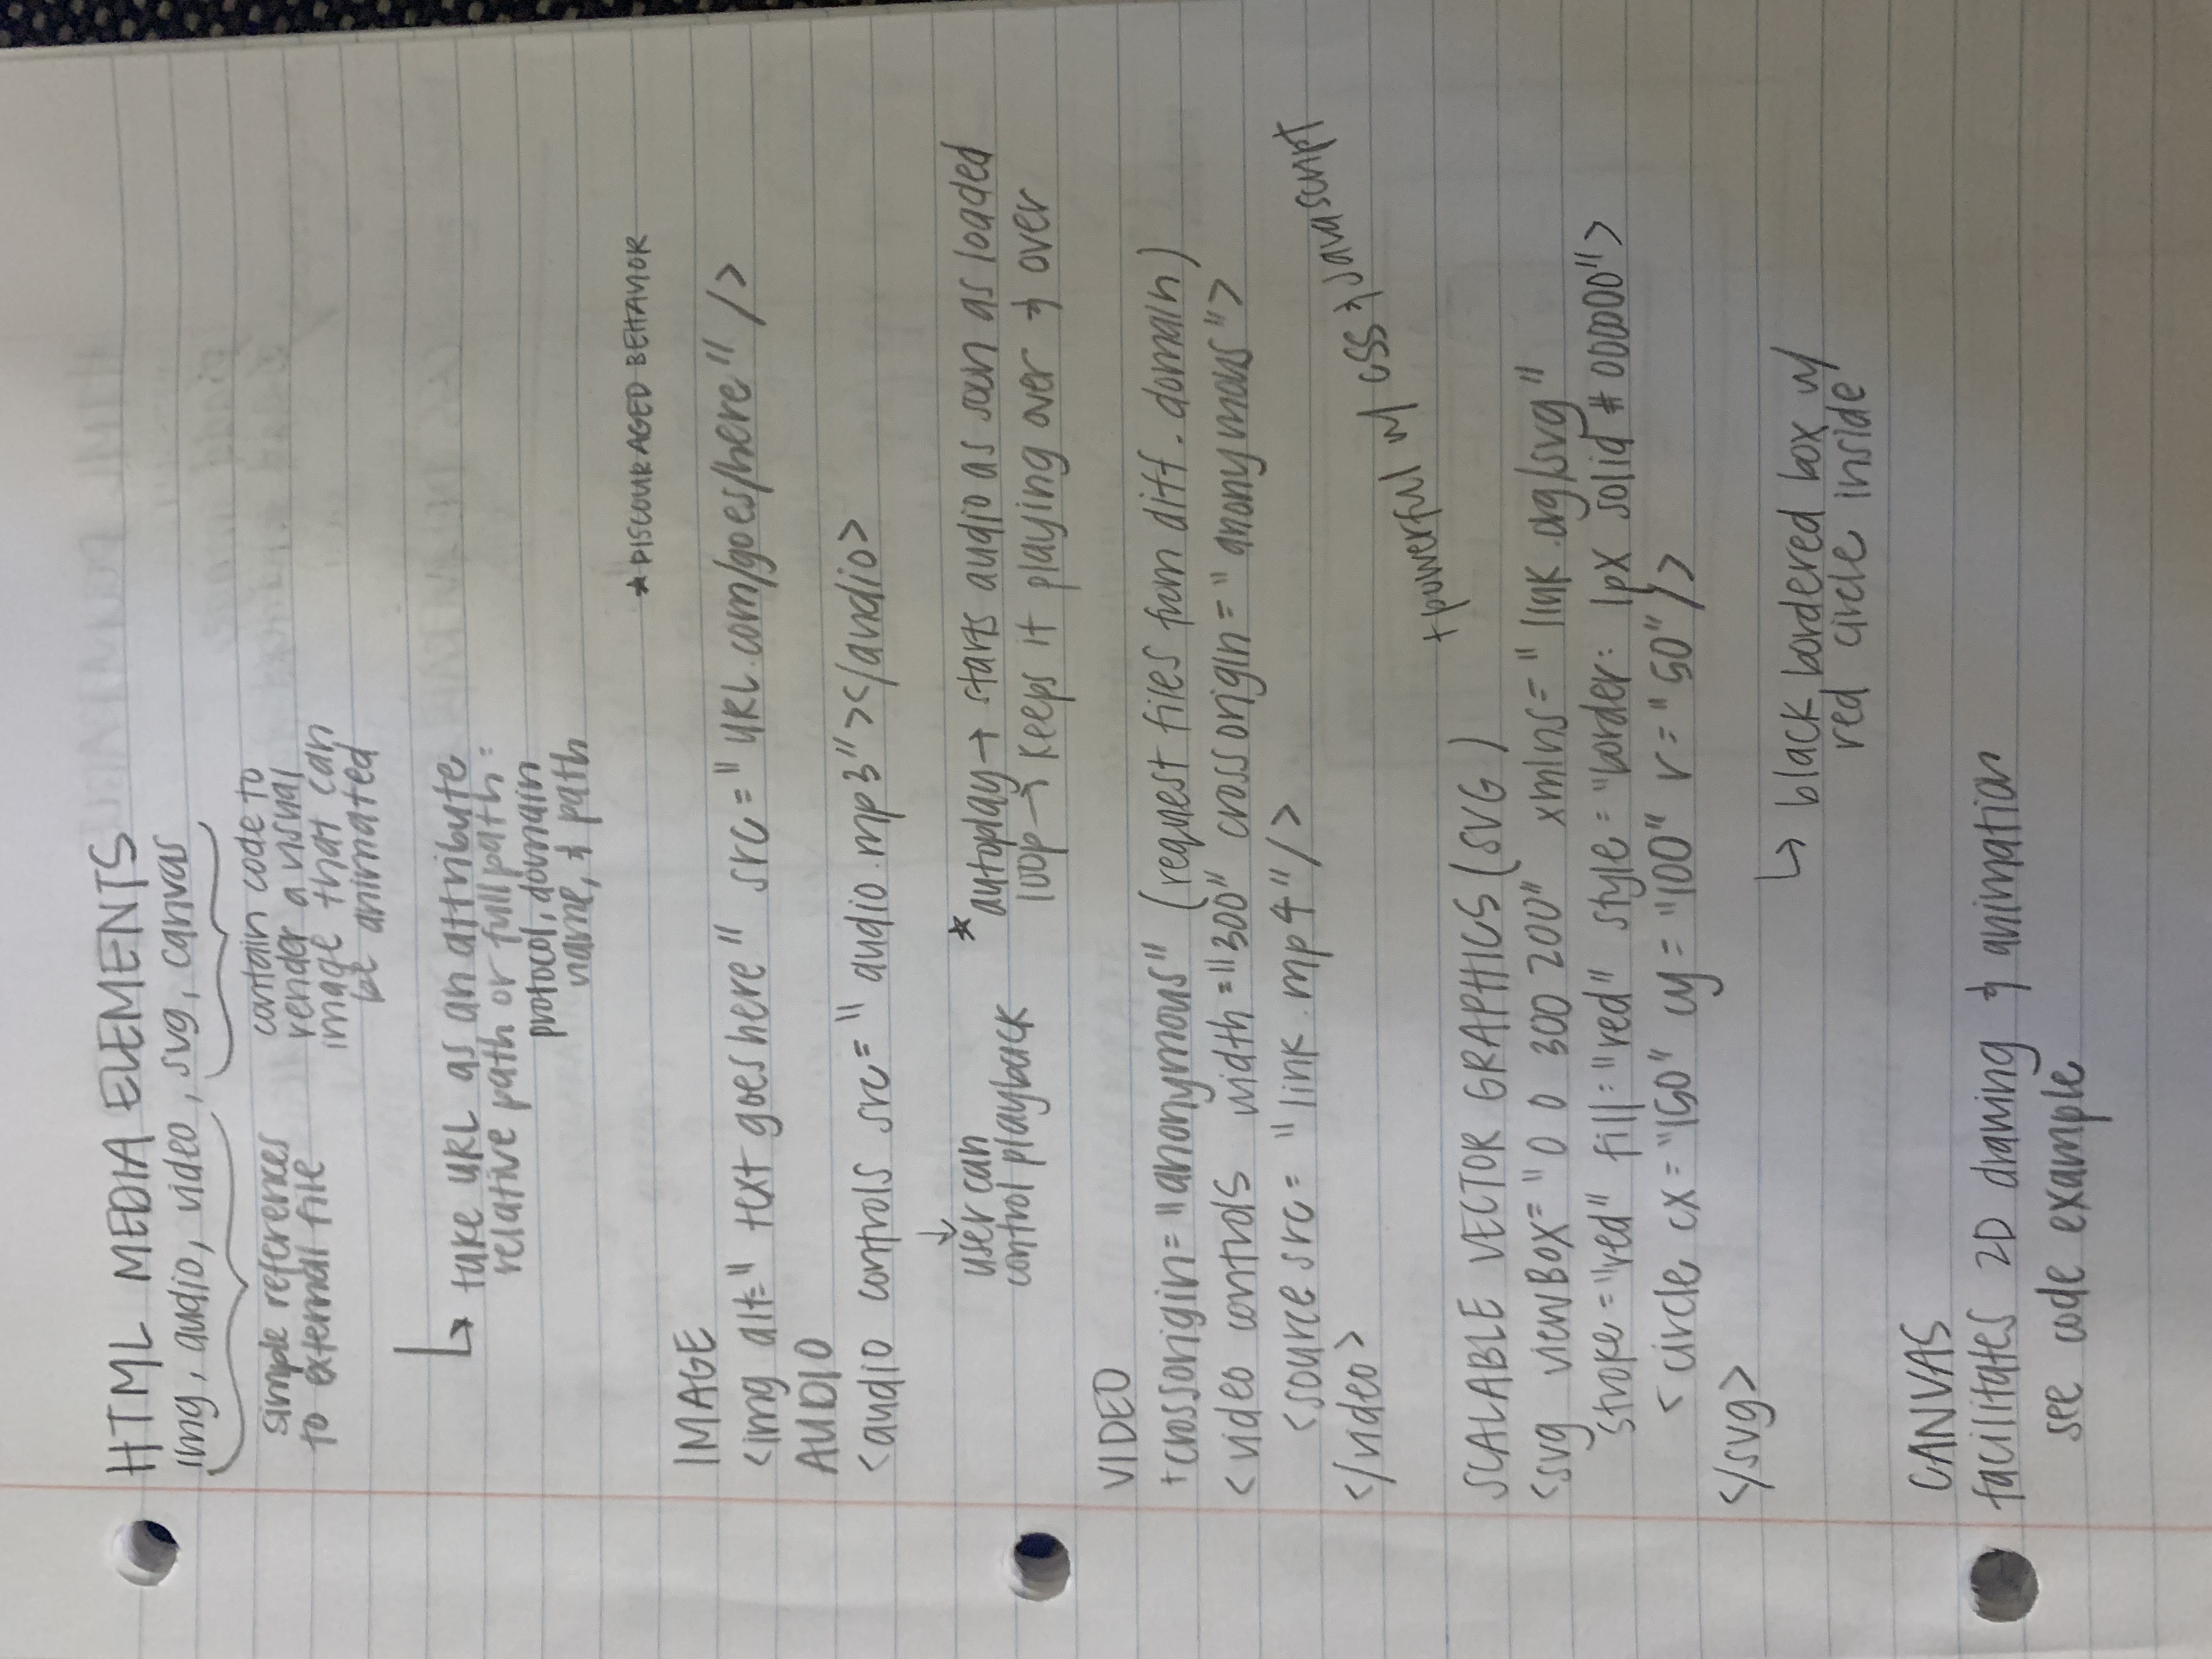 HTML MEDIA ELEMENTS
img, audio, video, svg, canvas
simple references
to external file
contain code to
render a visual
image that can
be animated
↳ take URL as an attribute
relative path or full path:
protocol, domain
name, & path
* DISCOURAGED BEHAVIOR
IMAGE
<img alt="text goes here" src="URL.com/goes/here" />
AUDIO
<audio controls src="audio.mp3"></audio>
↓
user can
control playback
* autoplay → starts audio as soon as loaded
loop → keeps it playing over & over
VIDEO
+crossorigin="anonymous" (request files from diff. domain)
<video controls width="300" crossorigin="anonymous">
<source src="link.mp4"/>
</video>
+powerful w/ CSS & Javascript
SCALABLE VECTOR GRAPHICS (SVG)
<svg viewBox="0 0 300 200" xmlns="link.org/svg"
stroke="red" fill="red" style="border: 1px solid #000000">
<circle cx="150" cy="100" r="50"/>
</svg>
↳ black bordered box w/
red circle inside
CANVAS
facilitates 2D drawing & animation
see code example